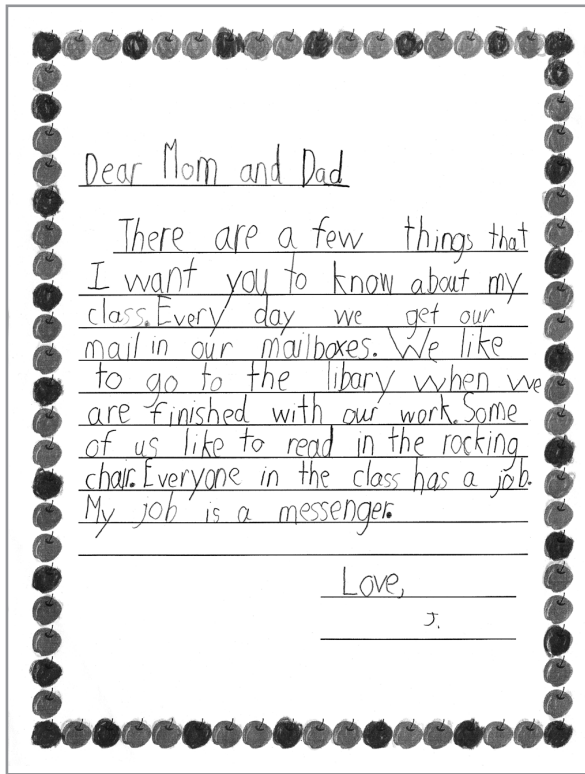 Dear Mom and Dad
There are a few things that
I want you to know about my
class. Every day we get our
mail in our mailboxes. We like
to go to the libary when we
are finished with our work. Some
of us like to read in the rocking
chair. Everyone in the class has a job.
My job is a messenger.
Love,
J.